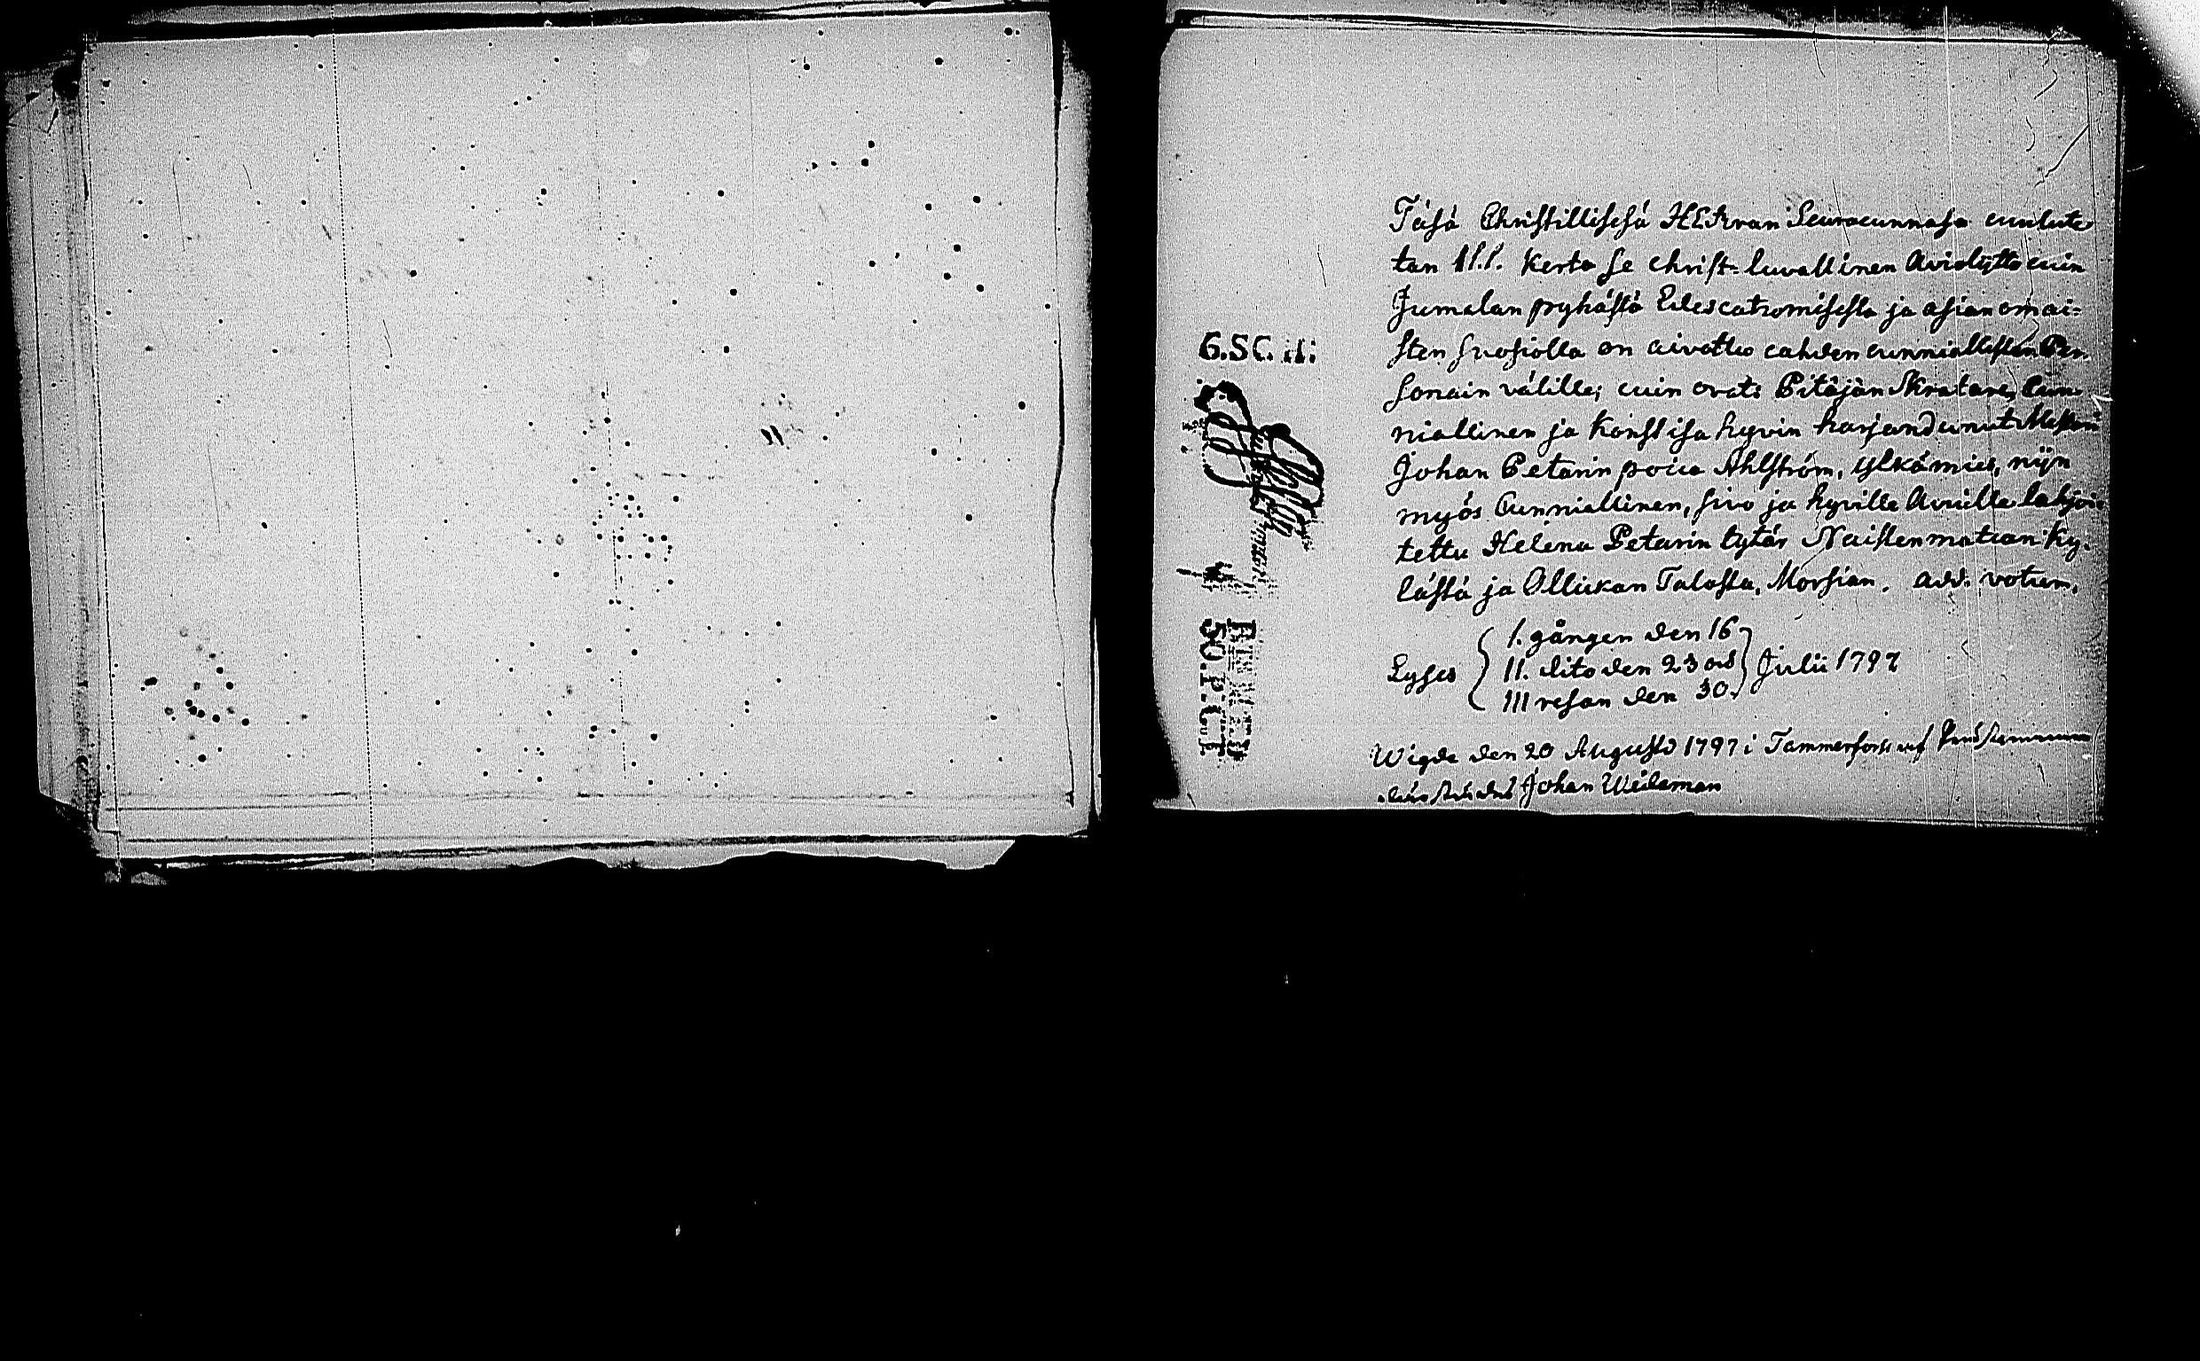 G.SC.
Täsä Christillisesä HERran Seuracunnasa cuulute
tan II.I. kerta se christ- luvallinen Avioliitto cuin
Jumalan pyhästä Edescatzomisesta ja asian omai=
sten suosiolla on aivottu cahden cunniallisten Per-
sonain välille; cuin ovat: Pitäjän Skratare, Cun-
niallinen ja konstisa hyvin harjandunut Mestari
Johan Petarin poica Ahlström, ylkämies, nijn
myös Cunniallinen, sivo ja hyville Avuille lahjoi-
tettu Helena Petarin tytär Naistenmatcan ky-
lästä ja Ollickan Talosta, Morsian. add. votum.
Lyses
I. gången den 16
II. dito den 23 och
III resan den 30.
Julii 1797
Wigde den 20 Augusto 1797 i Tammerfors af
Johan Wideman